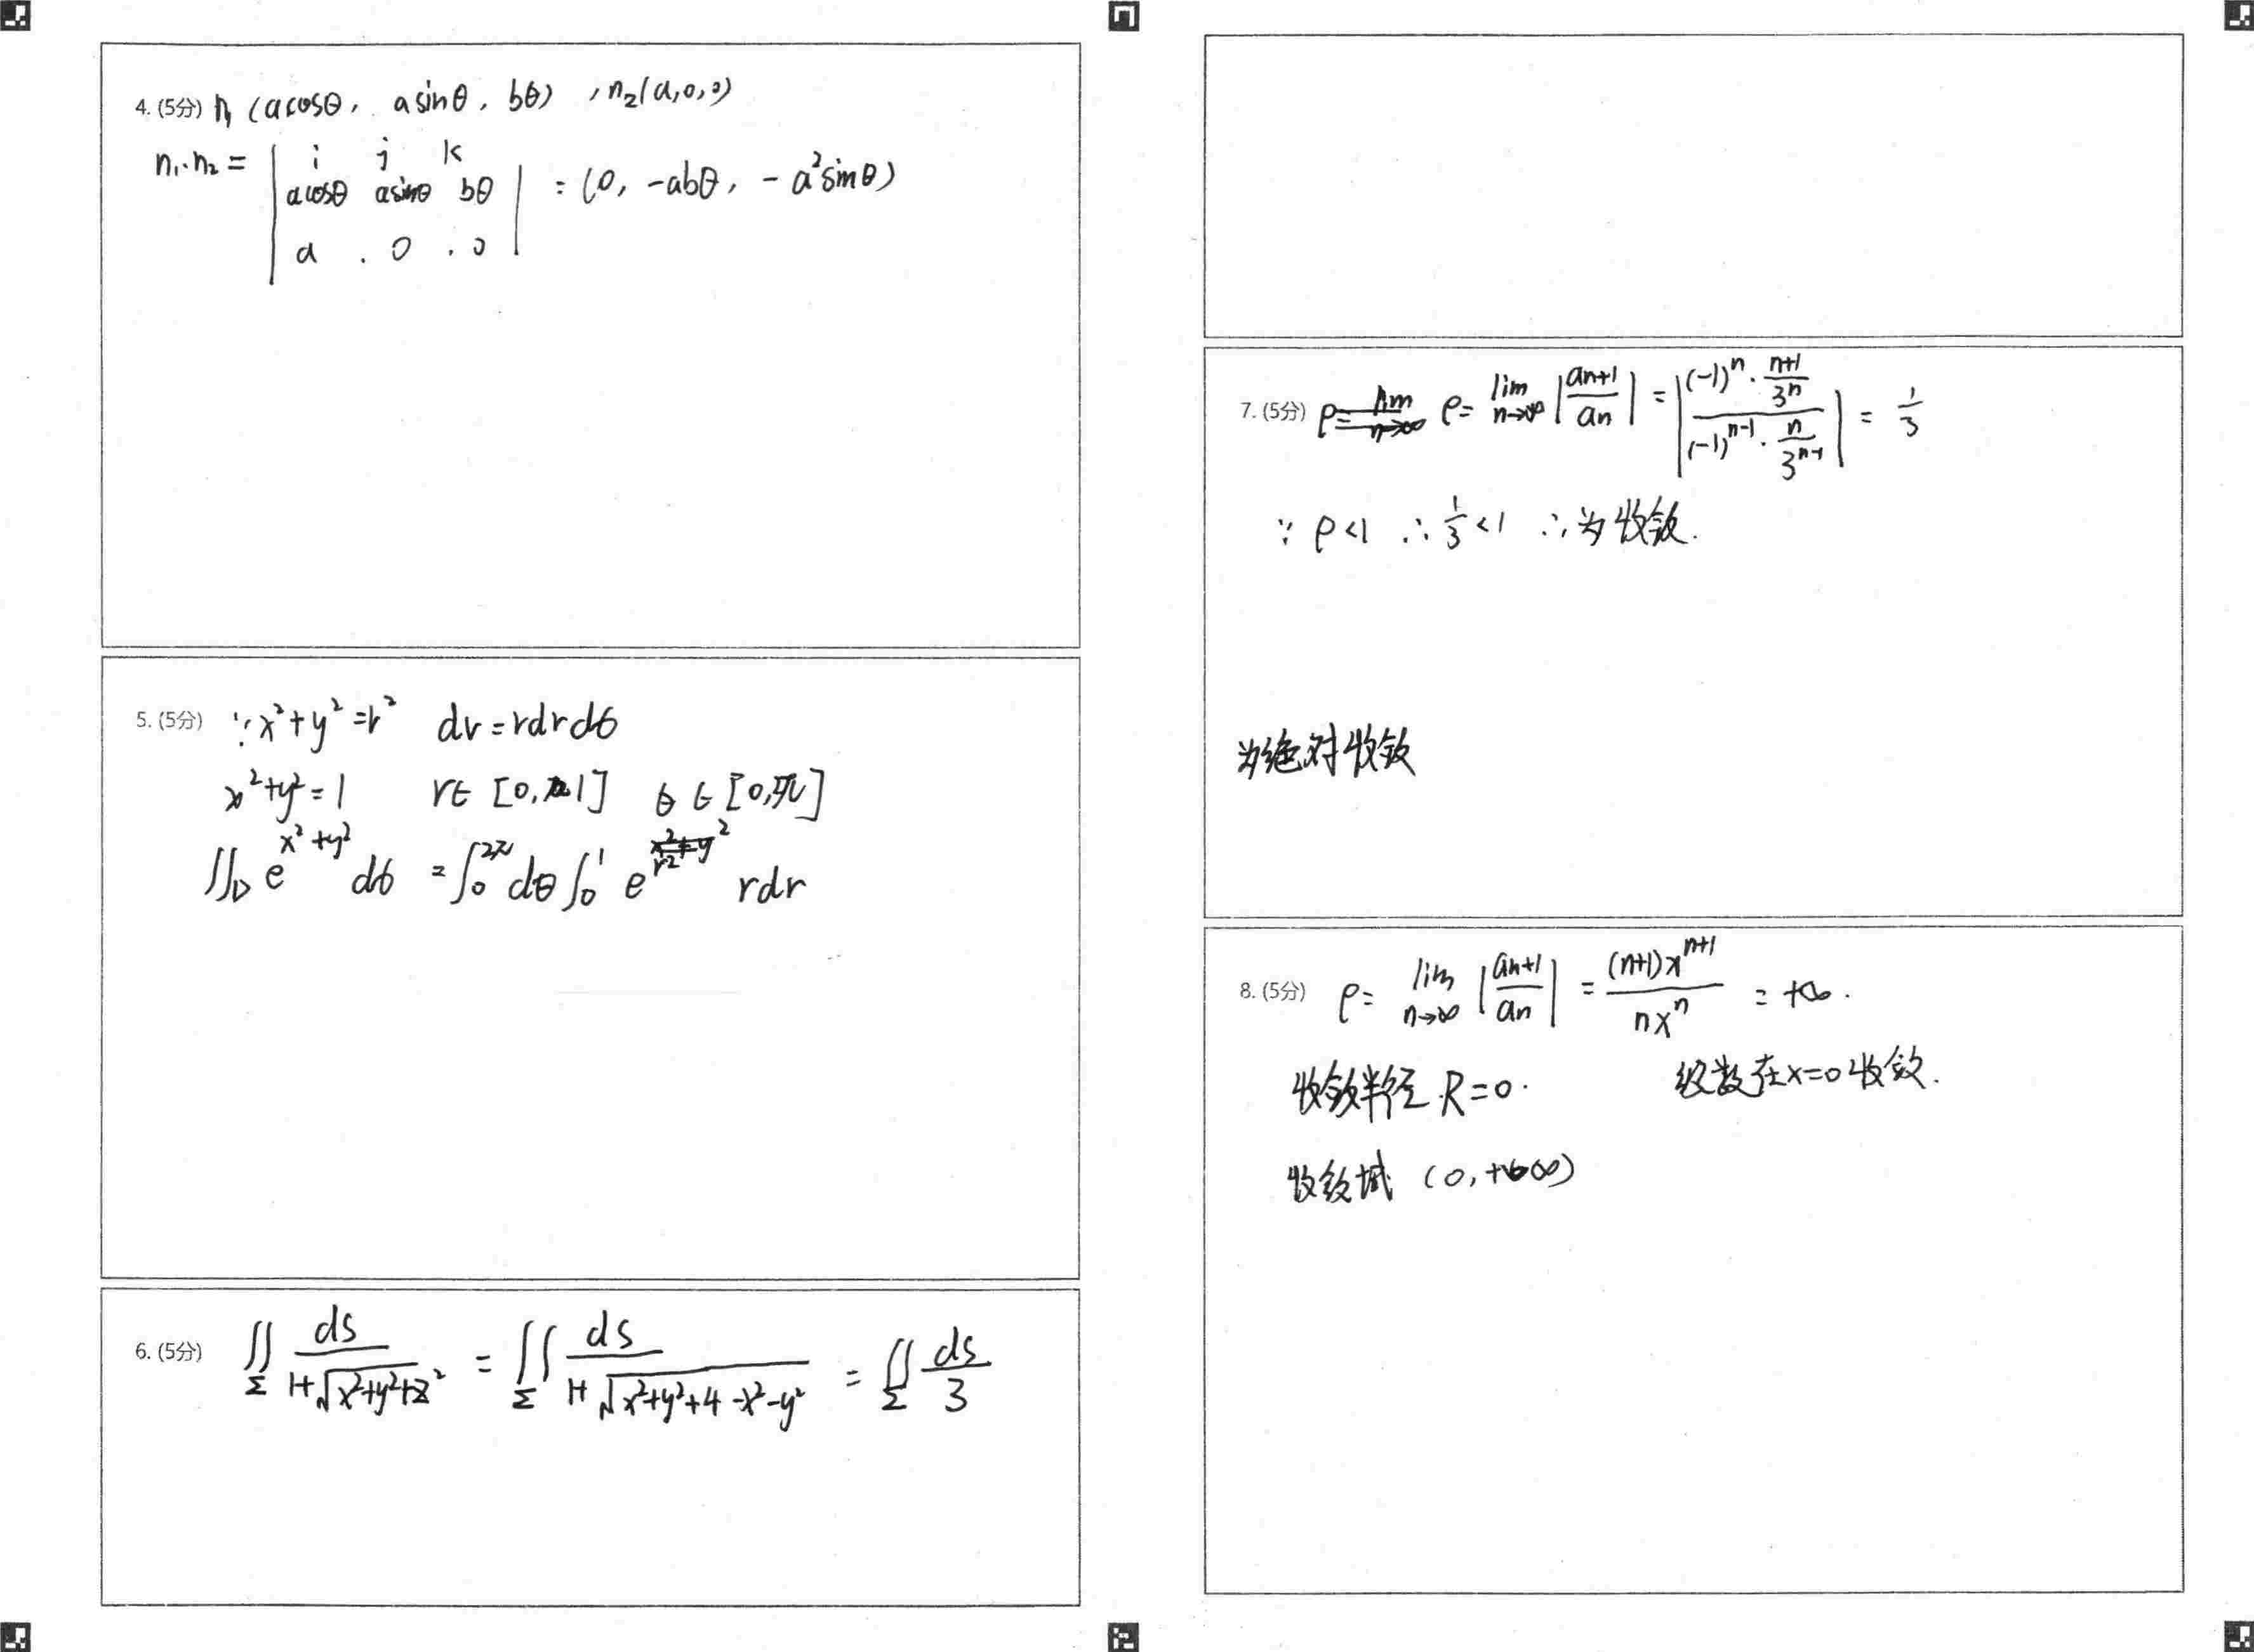 4. (5分) n₁ (acosθ, asinθ, bθ) , n₂(a,0,0)
n₁·n₂ = | i j k
acosθ asinθ bθ | = (0, -abθ, -a²sinθ)
a . 0 . 0
5. (5分) ∵x²+y²=r² dv=rdrdθ
x²+y²=1 r∈[0,1] θ∈[0,π]
∬_D e^(x²+y²) dσ = ∫₀^2π dθ ∫₀¹ e^(r²) rdr
6. (5分) ∬_Σ ds/(1+√(x²+y²+z²)) = ∬_Σ ds/(1+√(x²+y²+4-x²-y²)) = ∬_Σ ds/3
7. (5分) ρ= lim n→∞ ρ= lim n→∞ |an+1/an| = |((-1)^n · (n+1)/3^n)/((-1)^(n-1) · n/3^(n-1))| = 1/3
∵ ρ<1 ∴ 1/3<1 ∴为收敛.
为绝对收敛
8. (5分) ρ= lim n→∞ |an+1/an| = (n+1)x^(n+1)/(nx^n) = +∞.
收敛半径 R=0. 级数在x=0收敛.
收敛域 (0,+∞)